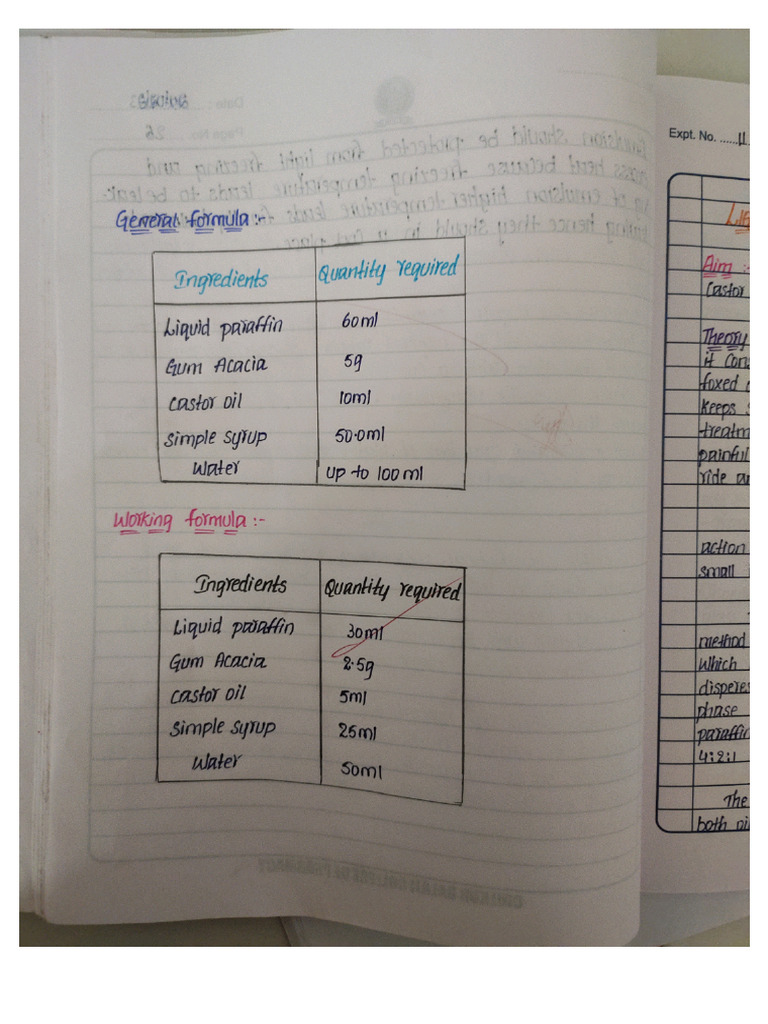 General formula :-
Ingredients Quantity required
Liquid paraffin 60ml
Gum Acacia 5g
Castor oil 10ml
Simple syrup 50.0ml
Water up to 100ml
Working formula :-
Ingredients Quantity required
Liquid paraffin 30ml
Gum Acacia 2.5g
Castor oil 5ml
Simple syrup 25ml
Water 50ml
Expt. No. ......11
Aim :-
Castor
Theory
it con
foxed
keeps
treatm
painful
ride
action
small
method
which
disperes
phase
paraffin
4:2:1
The
both